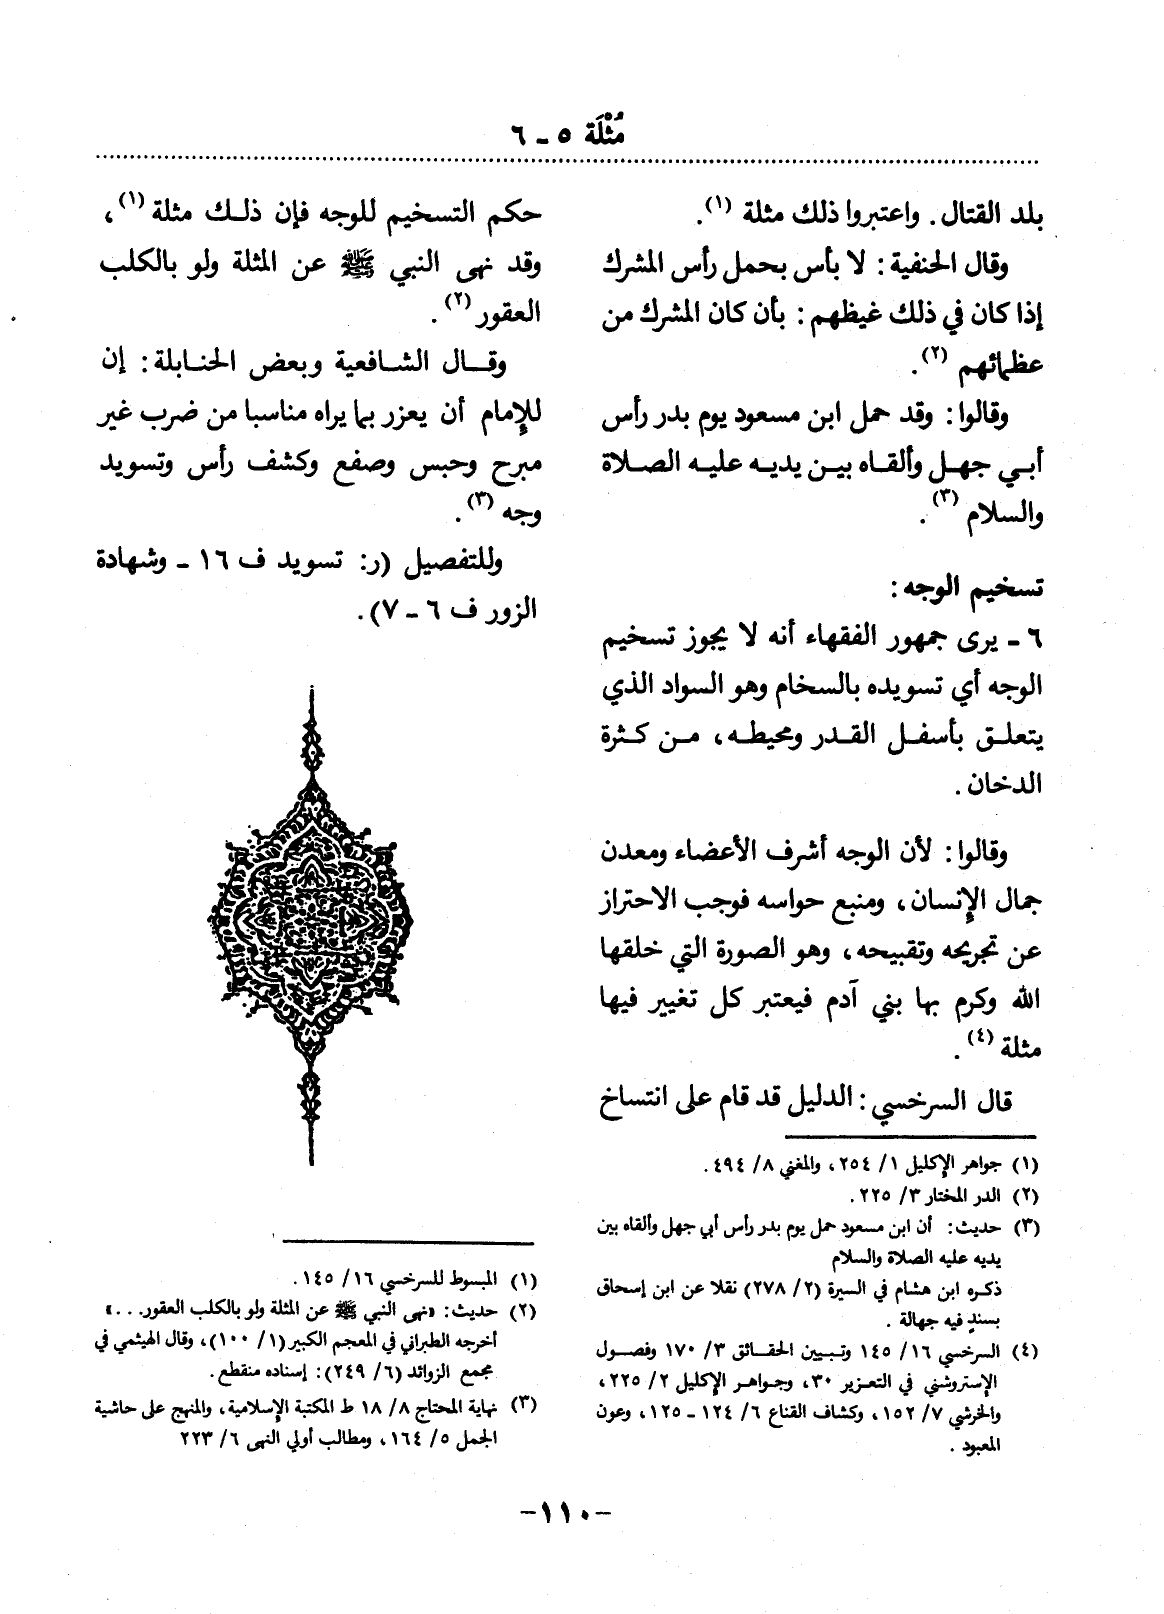 مُثْلَة ٥ ـ ٦
بلد القتال. واعتبروا ذلك مثلة (١).
وقال الحنفية: لا بأس بحمل رأس المشرك
إذا كان في ذلك غيظهم: بأن كان المشرك من
عظمائهم (٢).
وقالوا: وقد حمل ابن مسعود يوم بدر رأس
أبي جهل وألقاه بين يديه عليه الصلاة
والسلام (٣).
تسخيم الوجه:
٦ ـ يرى جمهور الفقهاء أنه لا يجوز تسخيم
الوجه أي تسويده بالسخام وهو السواد الذي
يتعلق بأسفل القدر ومحيطه، من كثرة
الدخان.
وقالوا: لأن الوجه أشرف الأعضاء ومعدن
جمال الإنسان، ومنبع حواسه فوجب الاحتراز
عن تجريحه وتقبيحه، وهو الصورة التي خلقها
الله وكرم بها بني آدم فيعتبر كل تغيير فيها
مثلة (٤).
قال السرخسي: الدليل قد قام على انتساخ
(١) جواهر الإكليل ١/ ٢٥٤، والمغني ٨/ ٤٩٤.
(٢) الدر المختار ٣/ ٢٢٥.
(٣) حديث: أن ابن مسعود حمل يوم بدر رأس أبي جهل وألقاه بين
يديه عليه الصلاة والسلام
ذكره ابن هشام في السيرة (٢/ ٢٧٨) نقلا عن ابن إسحاق
بسندٍ فيه جهالة.
(٤) السرخسي ١٦/ ١٤٥ وتبيين الحقائق ٣/ ١٧٠ وفصول
الإستروشني في التعزير ٣٠، وجواهر الإكليل ٢/ ٢٢٥،
والخرشي ٧/ ١٥٢، وكشاف القناع ٦/ ١٢٤ ـ ١٢٥، وعون
المعبود.
حكم التسخيم للوجه فإن ذلك مثلة (١)،
وقد نهى النبي ﷺ عن المثلة ولو بالكلب
العقور (٢).
وقال الشافعية وبعض الحنابلة: إن
للإمام أن يعزر بما يراه مناسبا من ضرب غير
مبرح وحبس وصفع وكشف رأس وتسويد
وجه (٣).
وللتفصيل (ر: تسويد ف ١٦ ـ وشهادة
الزور ف ٦ ـ ٧).
(١) المبسوط للسرخسي ١٦/ ١٤٥.
(٢) حديث: «نهى النبي ﷺ عن المثلة ولو بالكلب العقور...»
أخرجه الطبراني في المعجم الكبير (١/ ١٠٠)، وقال الهيثمي في
مجمع الزوائد (٦/ ٢٤٩): إسناده منقطع.
(٣) نهاية المحتاج ٨/ ١٨ ط المكتبة الإسلامية، والمنهج على حاشية
الجمل ٥/ ١٦٤، ومطالب أولي النهى ٦/ ٢٢٣
-١١٠-